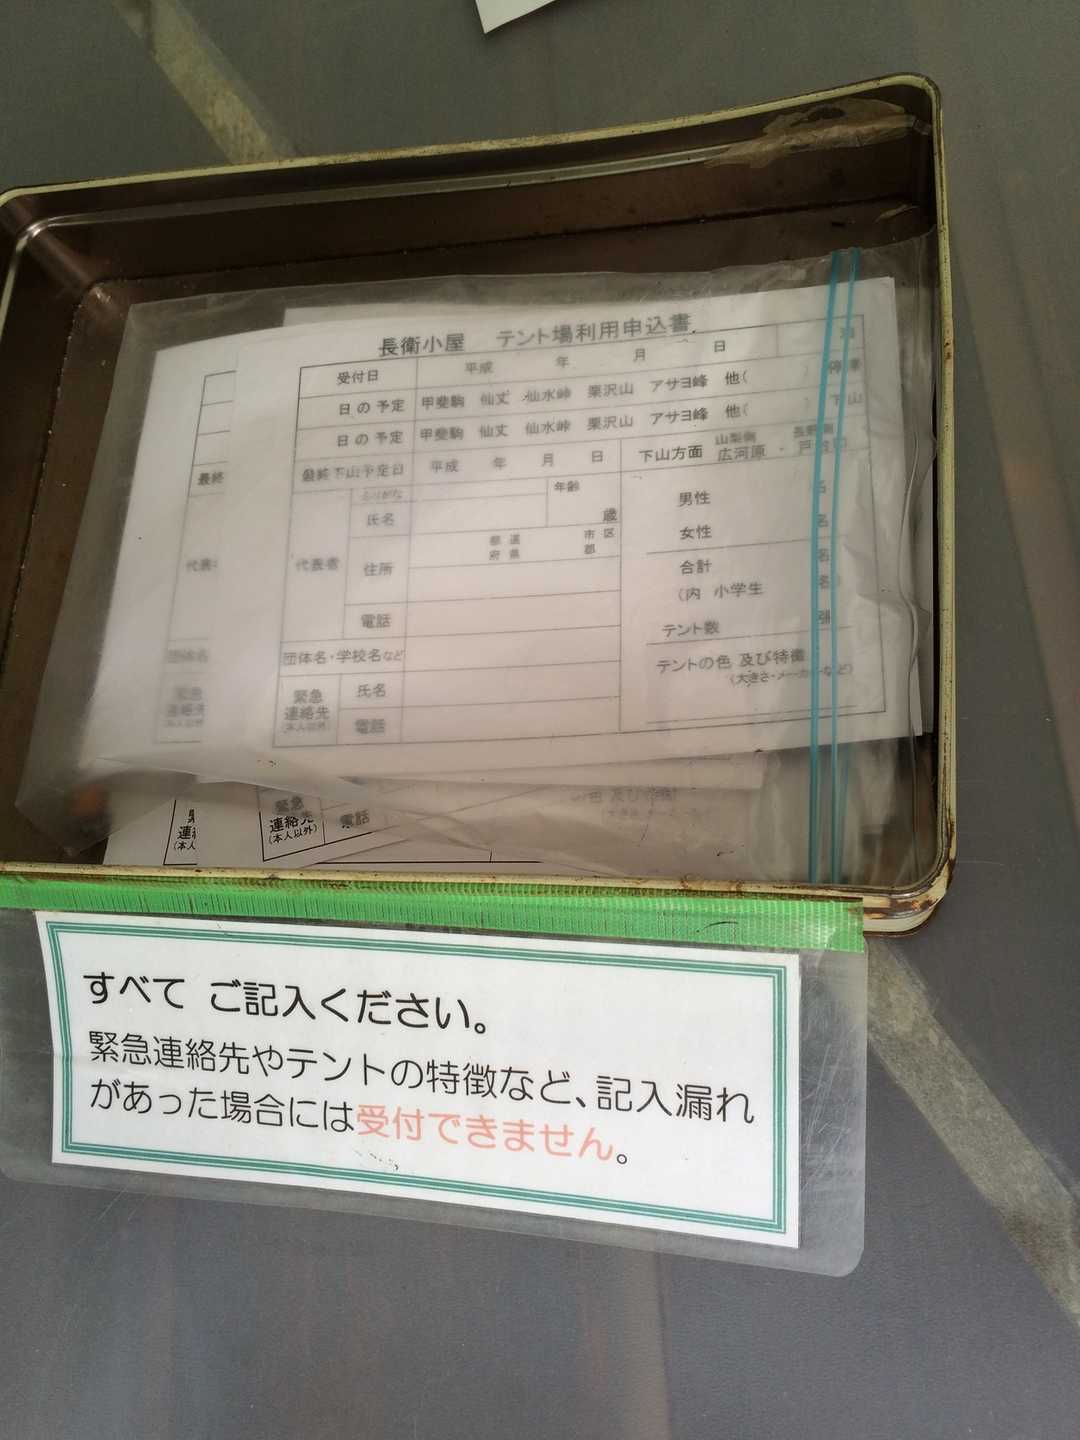 長衛小屋 テント場利用申込書
受付日 平成 年 月 日
日の予定 甲斐駒 仙丈 仙水峠 栗沢山 アサヨ峰 他( )
日の予定 甲斐駒 仙丈 仙水峠 栗沢山 アサヨ峰 他( ) 下山
最終下山予定日 平成 年 月 日 下山方面 山梨側 広河原 ・ 長野側 戸台口
代表者 ふりがな
氏名
年齢
歳
住所 都道府県 市区郡
電話
団体名・学校名など
緊急連絡先(本人以外) 氏名
電話
男性 名
女性 名
合計 名
(内 小学生 名)
テント数 張
テントの色 及び特徴
(大きさ・メーカーなど)
最終
代表
団体名
緊急
連絡先
(本人以外)
連絡
(本人
緊急
連絡先
(本人以外)
電話
すべて ご記入ください。
緊急連絡先やテントの特徴など、記入漏れ
があった場合には受付できません。